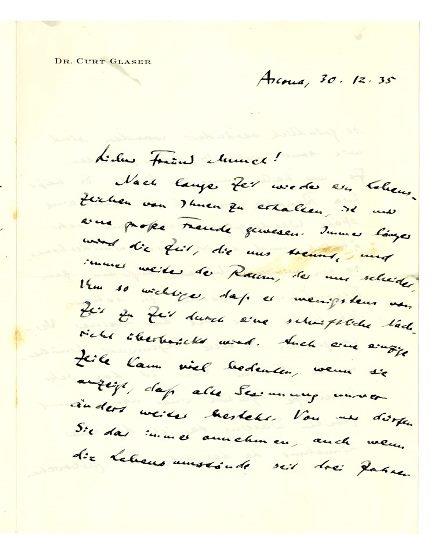 DR. CURT GLASER
Ascona, 30. 12. 35
Lieber Freund Munch!
Nach langer Zeit wieder ein Lebens-
zeichen von Ihnen zu erhalten, ist mir
eine große Freude gewesen. Immer länger
wird die Zeit, die uns trennt, und
immer weiter der Raum, der uns scheidet.
Um so wichtiger, daß er wenigstens von
Zeit zu Zeit durch eine schriftliche Nach-
richt überbrückt wird. Auch eine einzige
Zeile kann viel bedeuten, wenn sie
anzeigt, daß alte Gesinnung unver-
ändert weiter besteht. Von mir dürfen
Sie das immer annehmen, auch wenn
die Lebensumstände seit drei Jahren